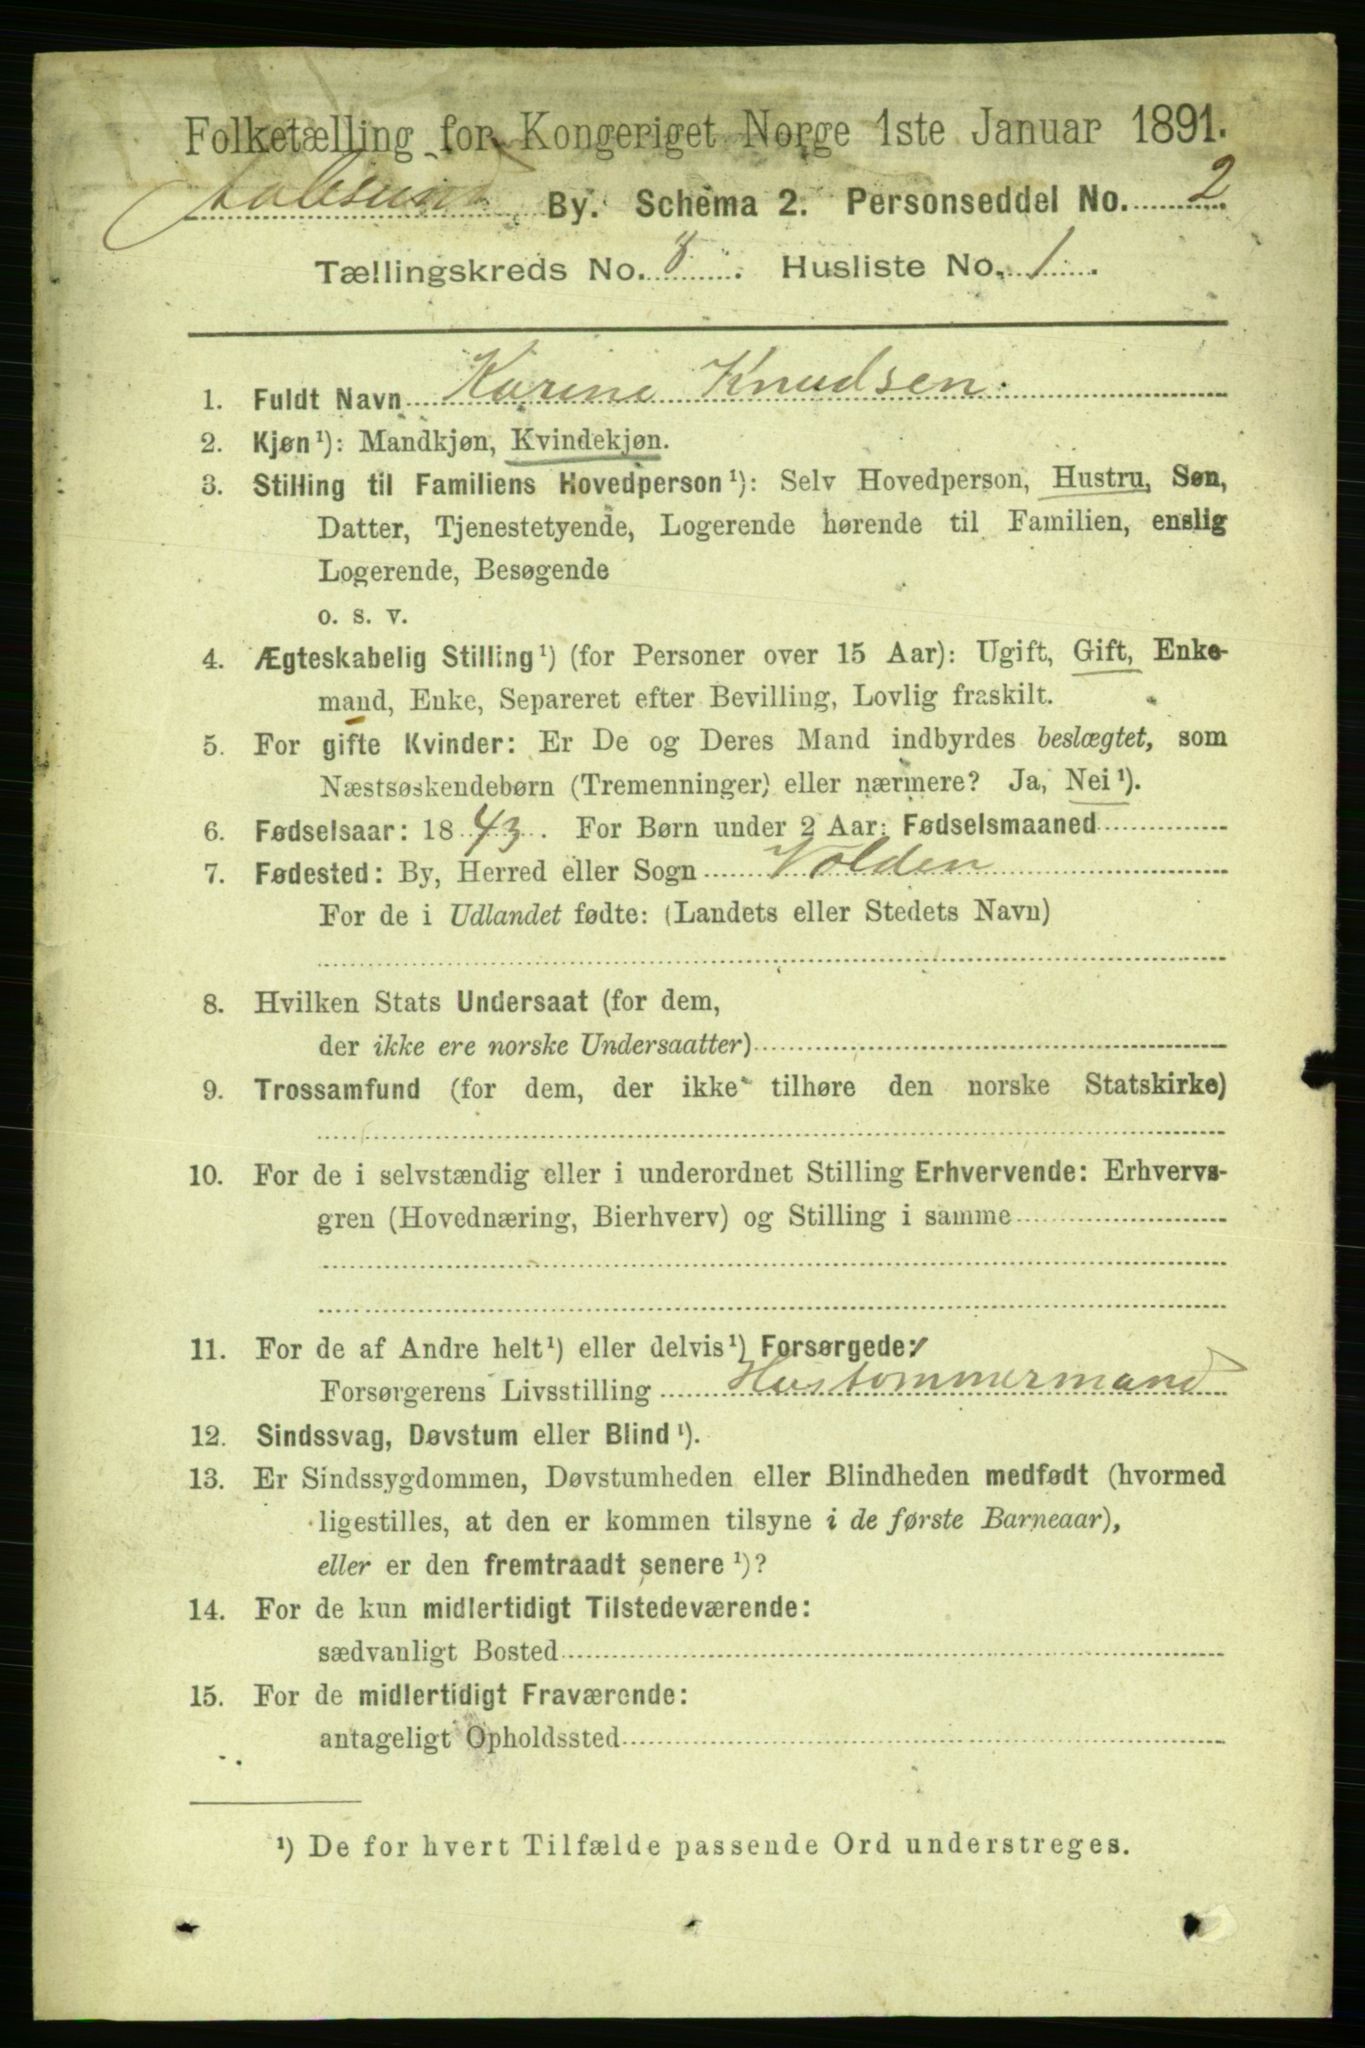 Folketælling for Kongeriget Norge 1ste Januar 1891.
Aalesund By. Schema 2. Personseddel No. 2
Tællingskreds No. 8. Husliste No. 1.
1. Fuldt Navn Karine Knudsen.
2. Kjøn¹): Mandkjøn, Kvindekjøn.
3. Stilling til Familiens Hovedperson¹): Selv Hovedperson, Hustru, Søn,
Datter, Tjenestetyende, Logerende hørende til Familien, enslig
Logerende, Besøgende
o. s. v.
4. Ægteskabelig Stilling¹) (for Personer over 15 Aar): Ugift, Gift, Enke-
mand, Enke, Separeret efter Bevilling, Lovlig fraskilt.
5. For gifte Kvinder: Er De og Deres Mand indbyrdes beslægtet, som
Næstsøskendebørn (Tremenninger) eller nærmere? Ja, Nei¹).
6. Fødselsaar: 1843. For Børn under 2 Aar: Fødselsmaaned
7. Fødested: By, Herred eller Sogn Volden
For de i Udlandet fødte: (Landets eller Stedets Navn)
8. Hvilken Stats Undersaat (for dem,
der ikke ere norske Undersaatter)
9. Trossamfund (for dem, der ikke tilhøre den norske Statskirke)
10. For de i selvstændig eller i underordnet Stilling Erhvervende: Erhvervs-
gren (Hovednæring, Bierhverv) og Stilling i samme
11. For de af Andre helt¹) eller delvis¹) Forsørgede:
Forsørgerens Livsstilling Hustommermand
12. Sindssvag, Døvstum eller Blind¹).
13. Er Sindssygdommen, Døvstumheden eller Blindheden medfødt (hvormed
ligestilles, at den er kommen tilsyne i de første Barneaar),
eller er den fremtraadt senere¹)?
14. For de kun midlertidigt Tilstedeværende:
sædvanligt Bosted
15. For de midlertidigt Fraværende:
antageligt Opholdssted
¹) De for hvert Tilfælde passende Ord understreges.